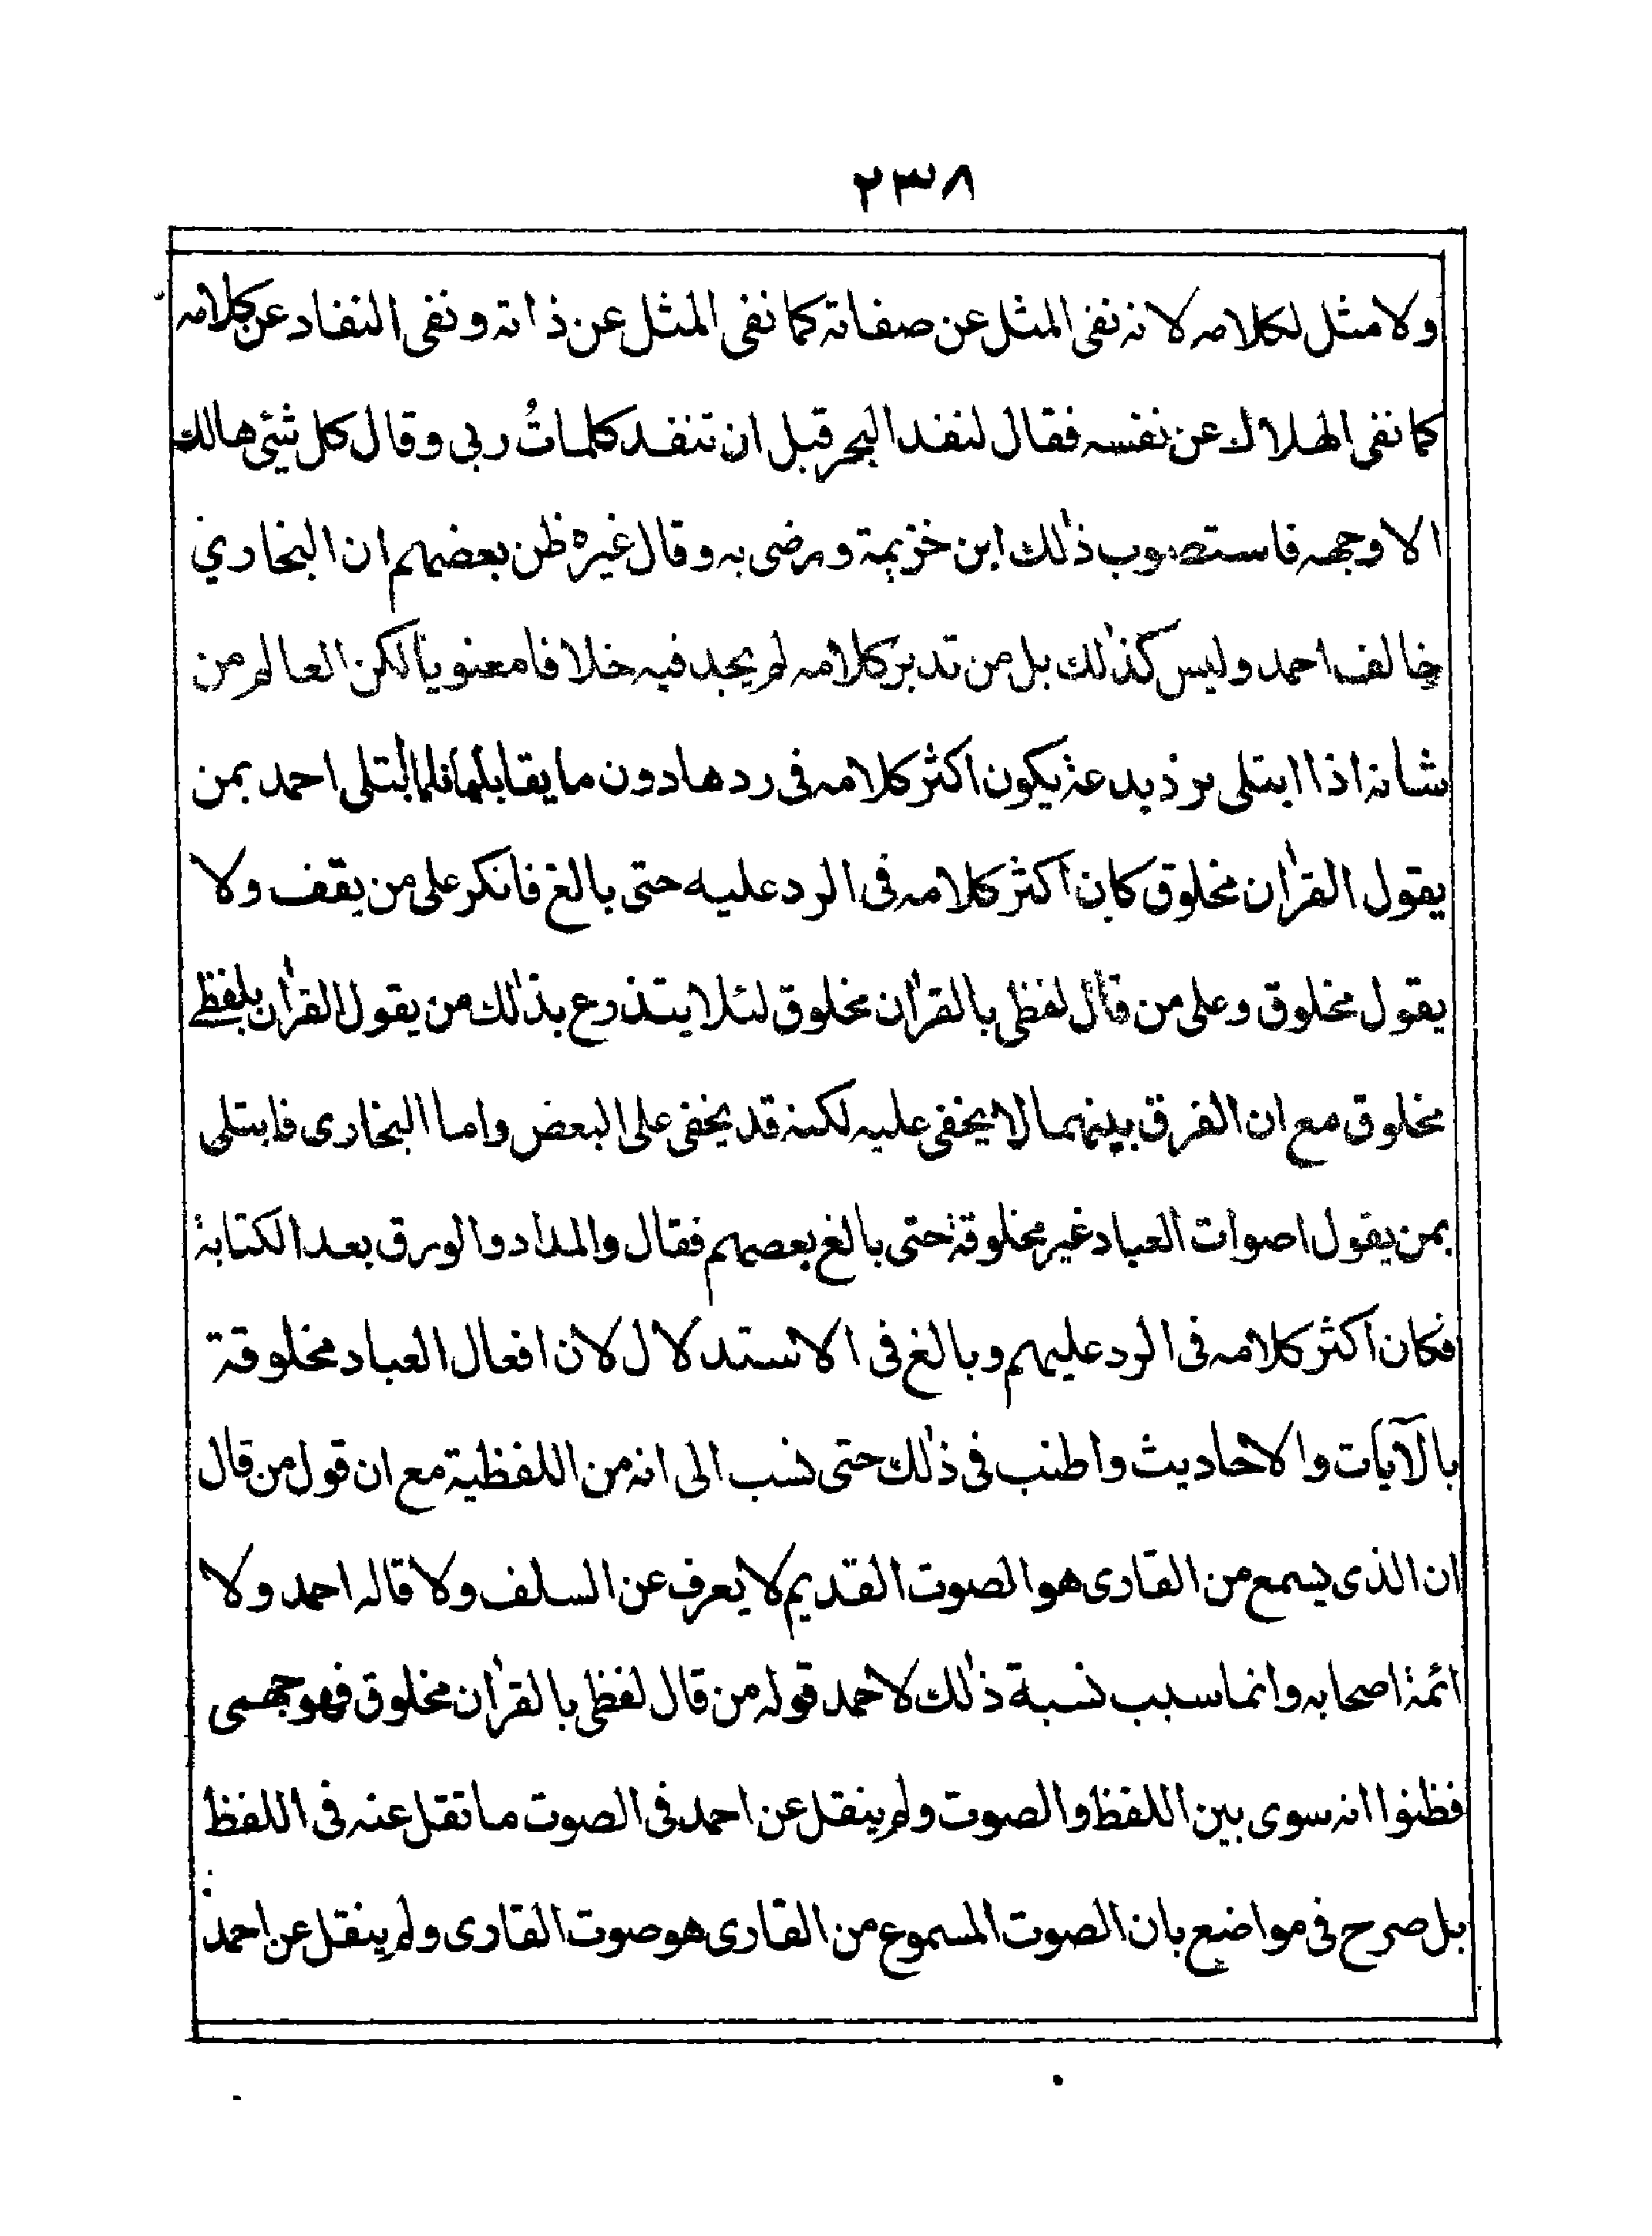 ٢٣٨
ولا مثل لكلامه لانه نفى المثل عن صفاته كما نفى المثل عن ذاته ونفى النفاد عن كلامه
كما نفى الهلاك عن نفسه فقال لنفد البحر قبل ان تنفد كلماتُ ربى وقال كل شئى هالك
الا وجهه فاستصوب ذٰلك ابن خزيمة ورضى به وقال غيره ظن بعضهم ان البخاري
خالف احمد وليس كذٰلك بل من تدبر كلامه لم يجد فيه خلافا معنويا لكن العالم من
شانه اذا ابتلى برد بدعة يكون اكثر كلامه فى ردها دون ما يقابلها فلما ابتلى احمد بمن
يقول القراٰن مخلوق كان اكثر كلامه فى الرد عليه حتى بالغ فانكر على من يقف ولا
يقول مخلوق وعلى من قال لفظى بالقراٰن مخلوق لئلا يتذرع بذٰلك من يقول القراٰن بلفظى
مخلوق مع ان الفرق بينهما لا يخفى عليه لكنه قد يخفى على البعض واما البخارى فابتلى
بمن يقول اصوات العباد غير مخلوقة حتى بالغ بعضهم فقال والمداد والورق بعد الكتابة
فكان اكثر كلامه فى الرد عليهم وبالغ فى الاستدلال لان افعال العباد مخلوقة
بالآيات والاحاديث واطنب فى ذٰلك حتى نسب الى انه من اللفظية مع ان قول من قال
ان الذى يسمع من القارى هو الصوت القديم لا يعرف عن السلف ولا قاله احمد ولا
ائمة اصحابه وانما سبب نسبة ذٰلك لاحمد قوله من قال لفظى بالقراٰن مخلوق فهو جهمى
فظنوا انه سوى بين اللفظ والصوت ولم ينقل عن احمد فى الصوت ما نقل عنه فى اللفظ
بل صرح فى مواضع بان الصوت المسموع من القارى هو صوت القارى ولم ينقل عن احمد